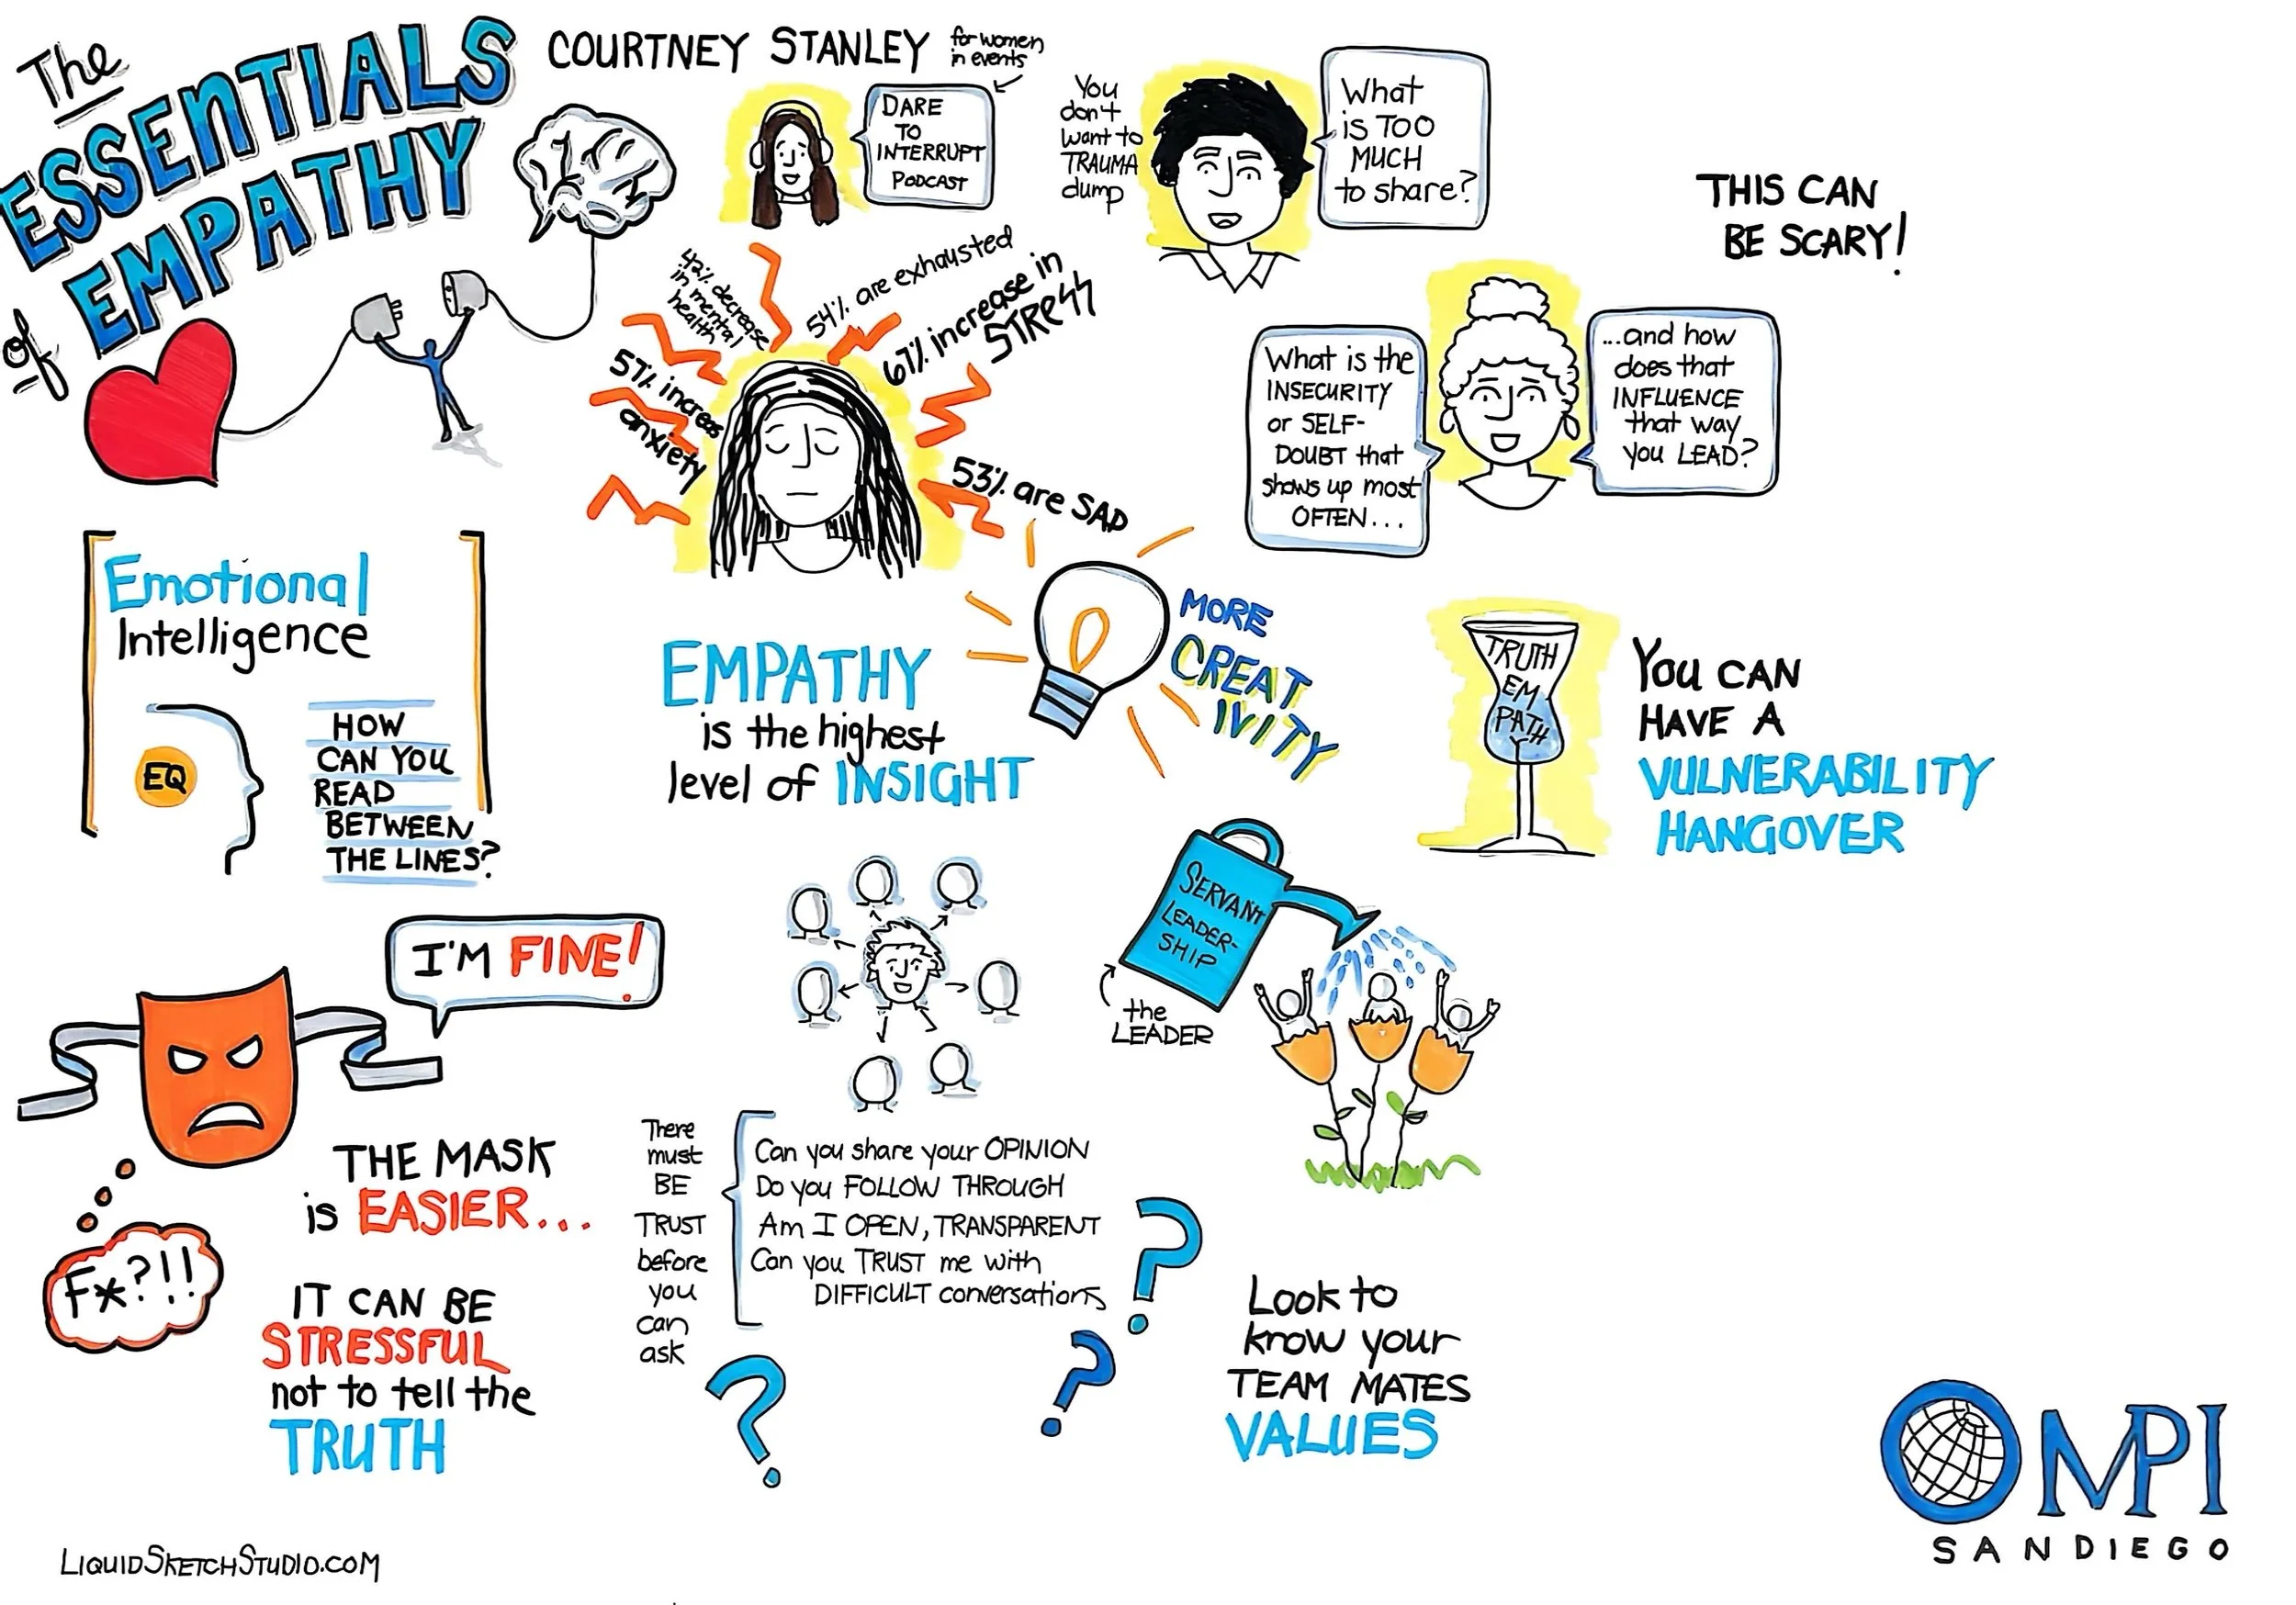 The
ESSENTIALS
of EMPATHY
COURTNEY STANLEY
for women
in events
DARE
TO
INTERRUPT
PODCAST
You
don't
want to
TRAUMA
dump
What
is TOO
MUCH
to share?
THIS CAN
BE SCARY!
42% decrease
in mental
health
54% are exhausted
67% increase in
STRESS
57% increas
anxiety
53% are SAD
What is the
INSECURITY
or SELF-
DOUBT that
shows up most
OFTEN...
...and how
does that
INFLUENCE
that way
you LEAD?
Emotional
Intelligence
EQ
HOW
CAN YOU
READ
BETWEEN
THE LINES?
EMPATHY
is the highest
level of INSIGHT
MORE
CREAT
IVITY
TRUTH
EM
PATHY
You CAN
HAVE A
VULNERABILITY
HANGOVER
I'M FINE!
F*?!!
THE MASK
is EASIER...
IT CAN BE
STRESSFUL
not to tell the
TRUTH
SERVANT
LEADER-
SHIP
the
LEADER
There
must
BE
TRUST
before
you
can
ask
Can you share your OPINION
Do you FOLLOW THROUGH
Am I OPEN, TRANSPARENT
Can you TRUST me with
DIFFICULT conversations
?
?
?
Look to
know your
TEAM MATES
VALUES
LIQUIDSKETCHSTUDIO.COM
MPI
SAN DIEGO